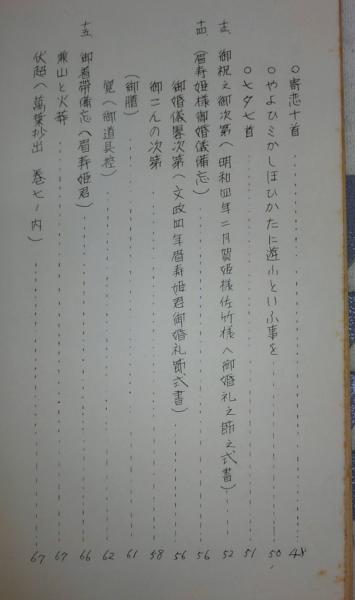 ○寄恋十首 48
○やよひミかしほひかたに遊ふといふ事を 50
○七夕七首 51
十三、御祝之御次第（明和四年二月賀姫様佐竹様へ御婚礼之節之式書） 52
十四、（暦寿姫様御婚儀備忘） 56
御婚儀畧次第（文政四年暦寿姫君御婚礼節式書） 56
御こんの次第 58
（御膳） 61
覚（御道具控） 62
十五、御着帯備忘（眉寿姫君） 66
兼山と火葬 67
伏超（萬葉抄出 巻七ノ内） 67